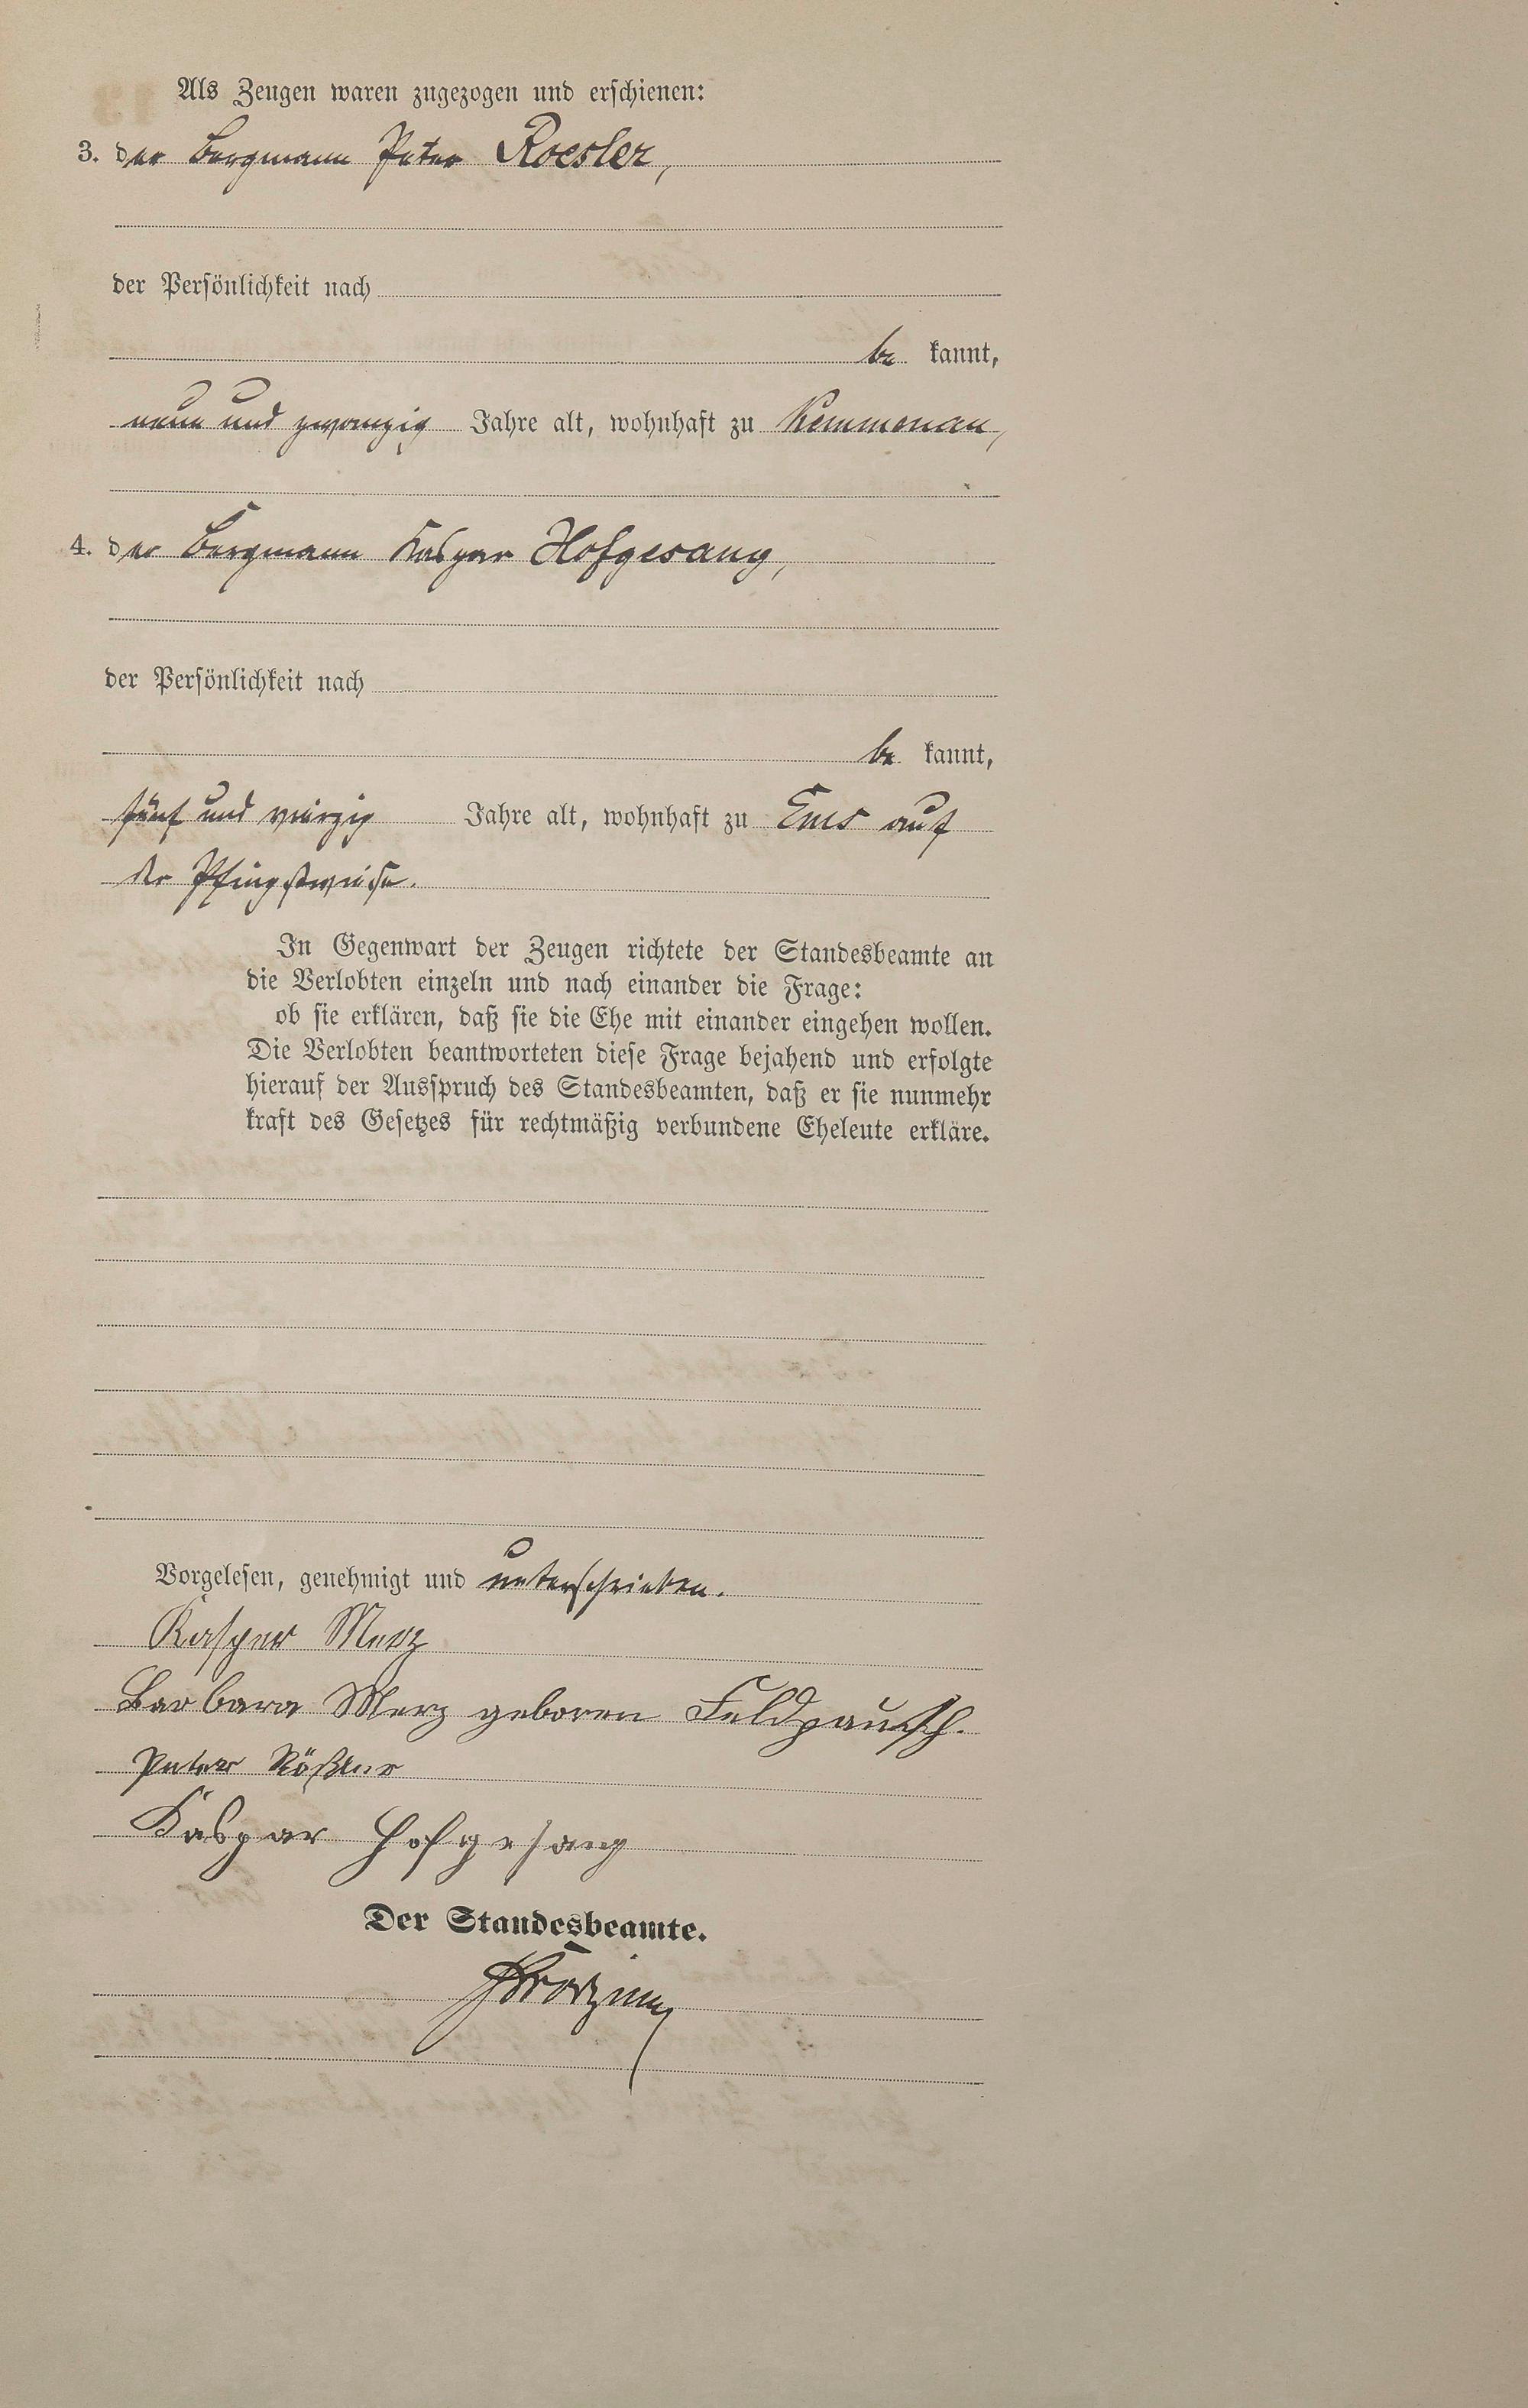 Als Zeugen waren zugezogen und erschienen:
3. der Bergmann Peter Roesler,
der Persönlichkeit nach
be kannt,
neun und zwanzig Jahre alt, wohnhaft zu Kemmenau,
4. der Bergmann Kaspar Hofgesang,
der Persönlichkeit nach
be kannt,
fünf und vierzig Jahre alt, wohnhaft zu Ems auf
der Pfingstweise.
In Gegenwart der Zeugen richtete der Standesbeamte an
die Verlobten einzeln und nach einander die Frage:
ob sie erklären, daß sie die Ehe mit einander eingehen wollen.
Die Verlobten beantworteten diese Frage bejahend und erfolgte
hierauf der Ausspruch des Standesbeamten, daß er sie nunmehr
kraft des Gesetzes für rechtmäßig verbundene Eheleute erkläre.
Vorgelesen, genehmigt und unterschrieben.
Kasper Merz
Barbara Merz geboren Feldpausch.
Peter Rößler
Kaspar Hofgesang
Der Standesbeamte.